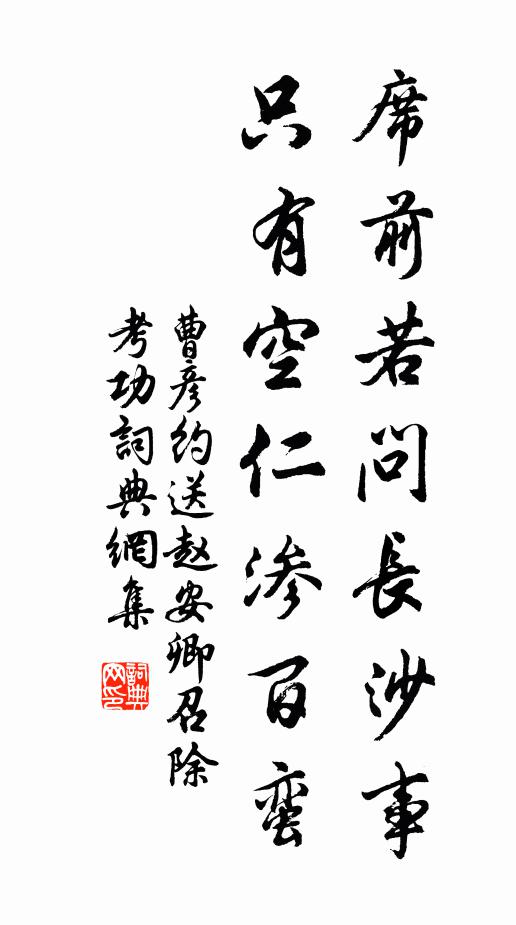 席前若问長沙事
只有空仁渗百蛮
曹彦约送赵安卿召除
考功詞典網集
詞典网印